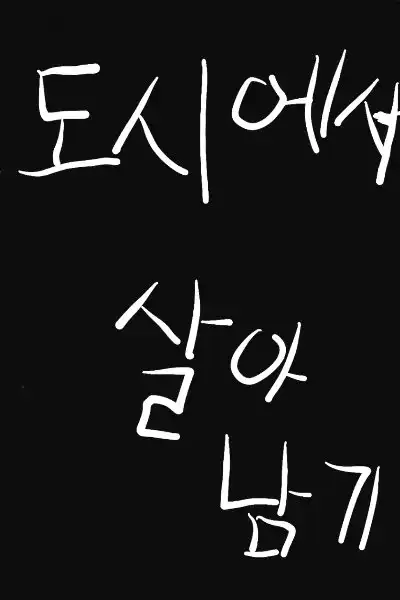 도시에서
살아
남기